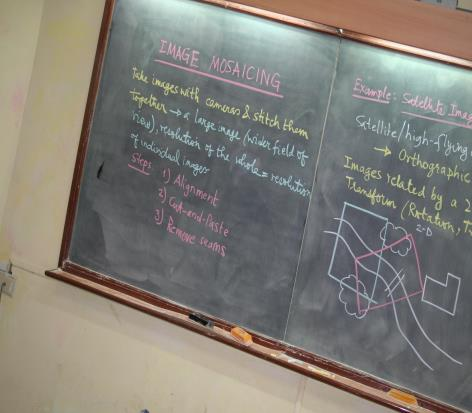 IMAGE MOSAICING
Take images with cameras & stitch them
together → a large image (wider field of
view), resolution of the whole = resolution
of individual images
Steps
1) Alignment
2) Cut-and-Paste
3) Remove seams
Example: Satellite Imag
Satellite/high-flying
→ Orthographic
Images related by a 2
Transform (Rotation, T
2-D